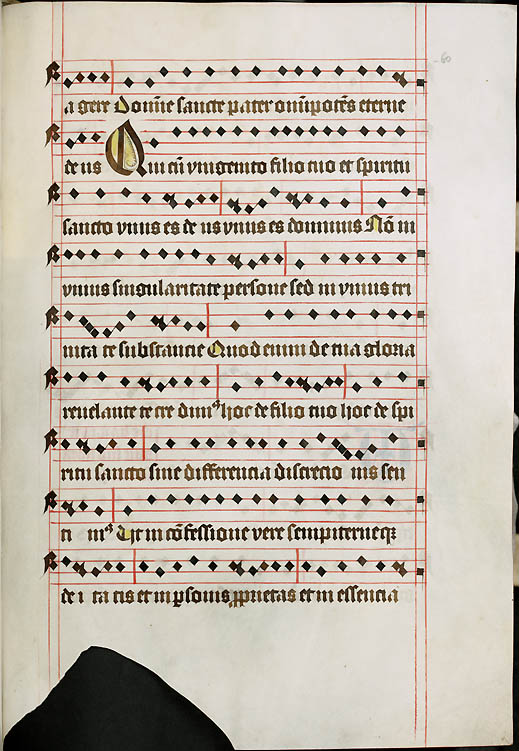 60
a gere Domīe sancte pater om̄ipotēs eterne
de us Qui cū vnigenito filio tuo et spiritu
sancto vnus es de us vnus es dominus Nō in
vnius singularitate persone sed in vnius tri
nita te substancie Quod enim de tua gloria
reuelante te cre dimꝰ hoc de filio tuo hoc de spi
ritu sancto sine differencia discrecio nis sen
ti mꝰ Ut in cōfessione vere sempiterneqꝫ
de i ta tis et in ꝑsonis ꝓprietas et in essencia